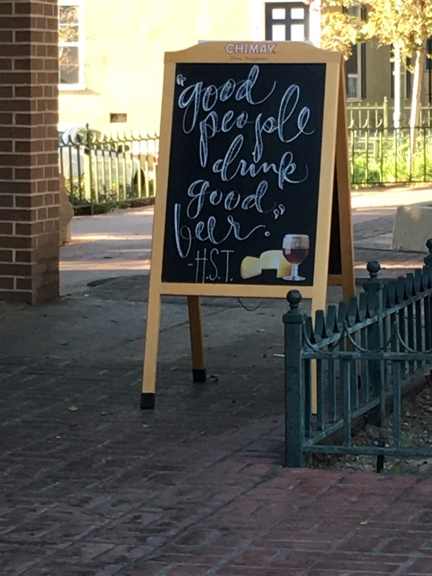 CHIMAY
"good
people
drink
good
beer."
-H.S.T.